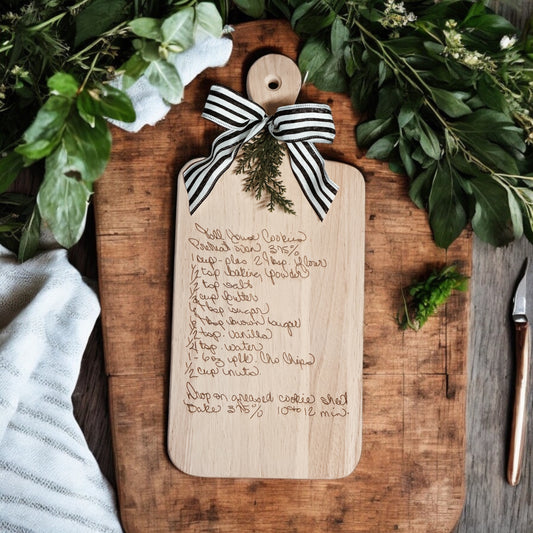 Toll House Cookies
Preheat oven 375%
1 cup - plus 2 tbsp. flour
1/2 tsp baking powder
1/2 tsp salt
cup butter
6 tbsp sugar
6 tbsp brown sugar
1/2 tsp. vanilla
1/4 tsp. water
1 - 6 oz pk. Cho Chips
1/2 cup nuts
Drop on greased cookie sheet
Bake 375% 10 to 12 min.